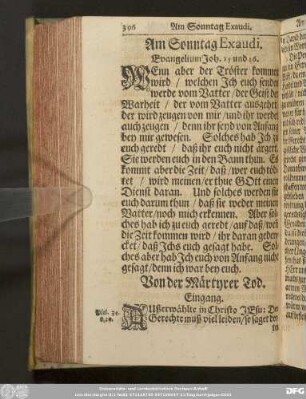 396 Am Sonntag Exaudi.
Am Sonntag Exaudi.
Evangelium Joh. 15 und 16.
WEnn aber der Tröster kommen
wird / welchen Ich euch senden
werde vom Vatter / der Geist der
Warheit / der vom Vatter ausgehet
der wird zeugen von mir / und ihr werdet
auch zeugen / denn ihr seyd von Anfang
bey mir gewesen. Solches hab Ich zu
euch geredt / daß ihr euch nicht ärgert.
Sie werden euch in den Bann thun. Es
kommt aber die Zeit / daß / wer euch töd-
tet / wird meinen / er thue GOtt einen
Dienst daran. Und solches werden sie
euch darum thun / daß sie weder meinen
Vatter / noch mich erkennen. Aber sol-
ches hab ich zu euch geredt / auf daß / wen
die Zeit kommen wird / ihr daran geden-
cket / daß Ichs euch gesagt habe. Sol-
ches aber hab Ich euch von Anfang nicht
gesagt / denn ich war bey euch.
Von der Märtyrer Tod.
Eingang.
AUßerwählte in Christo JEsu: Der
Gerechte muß viel leiden / so saget der
Psal. 34.